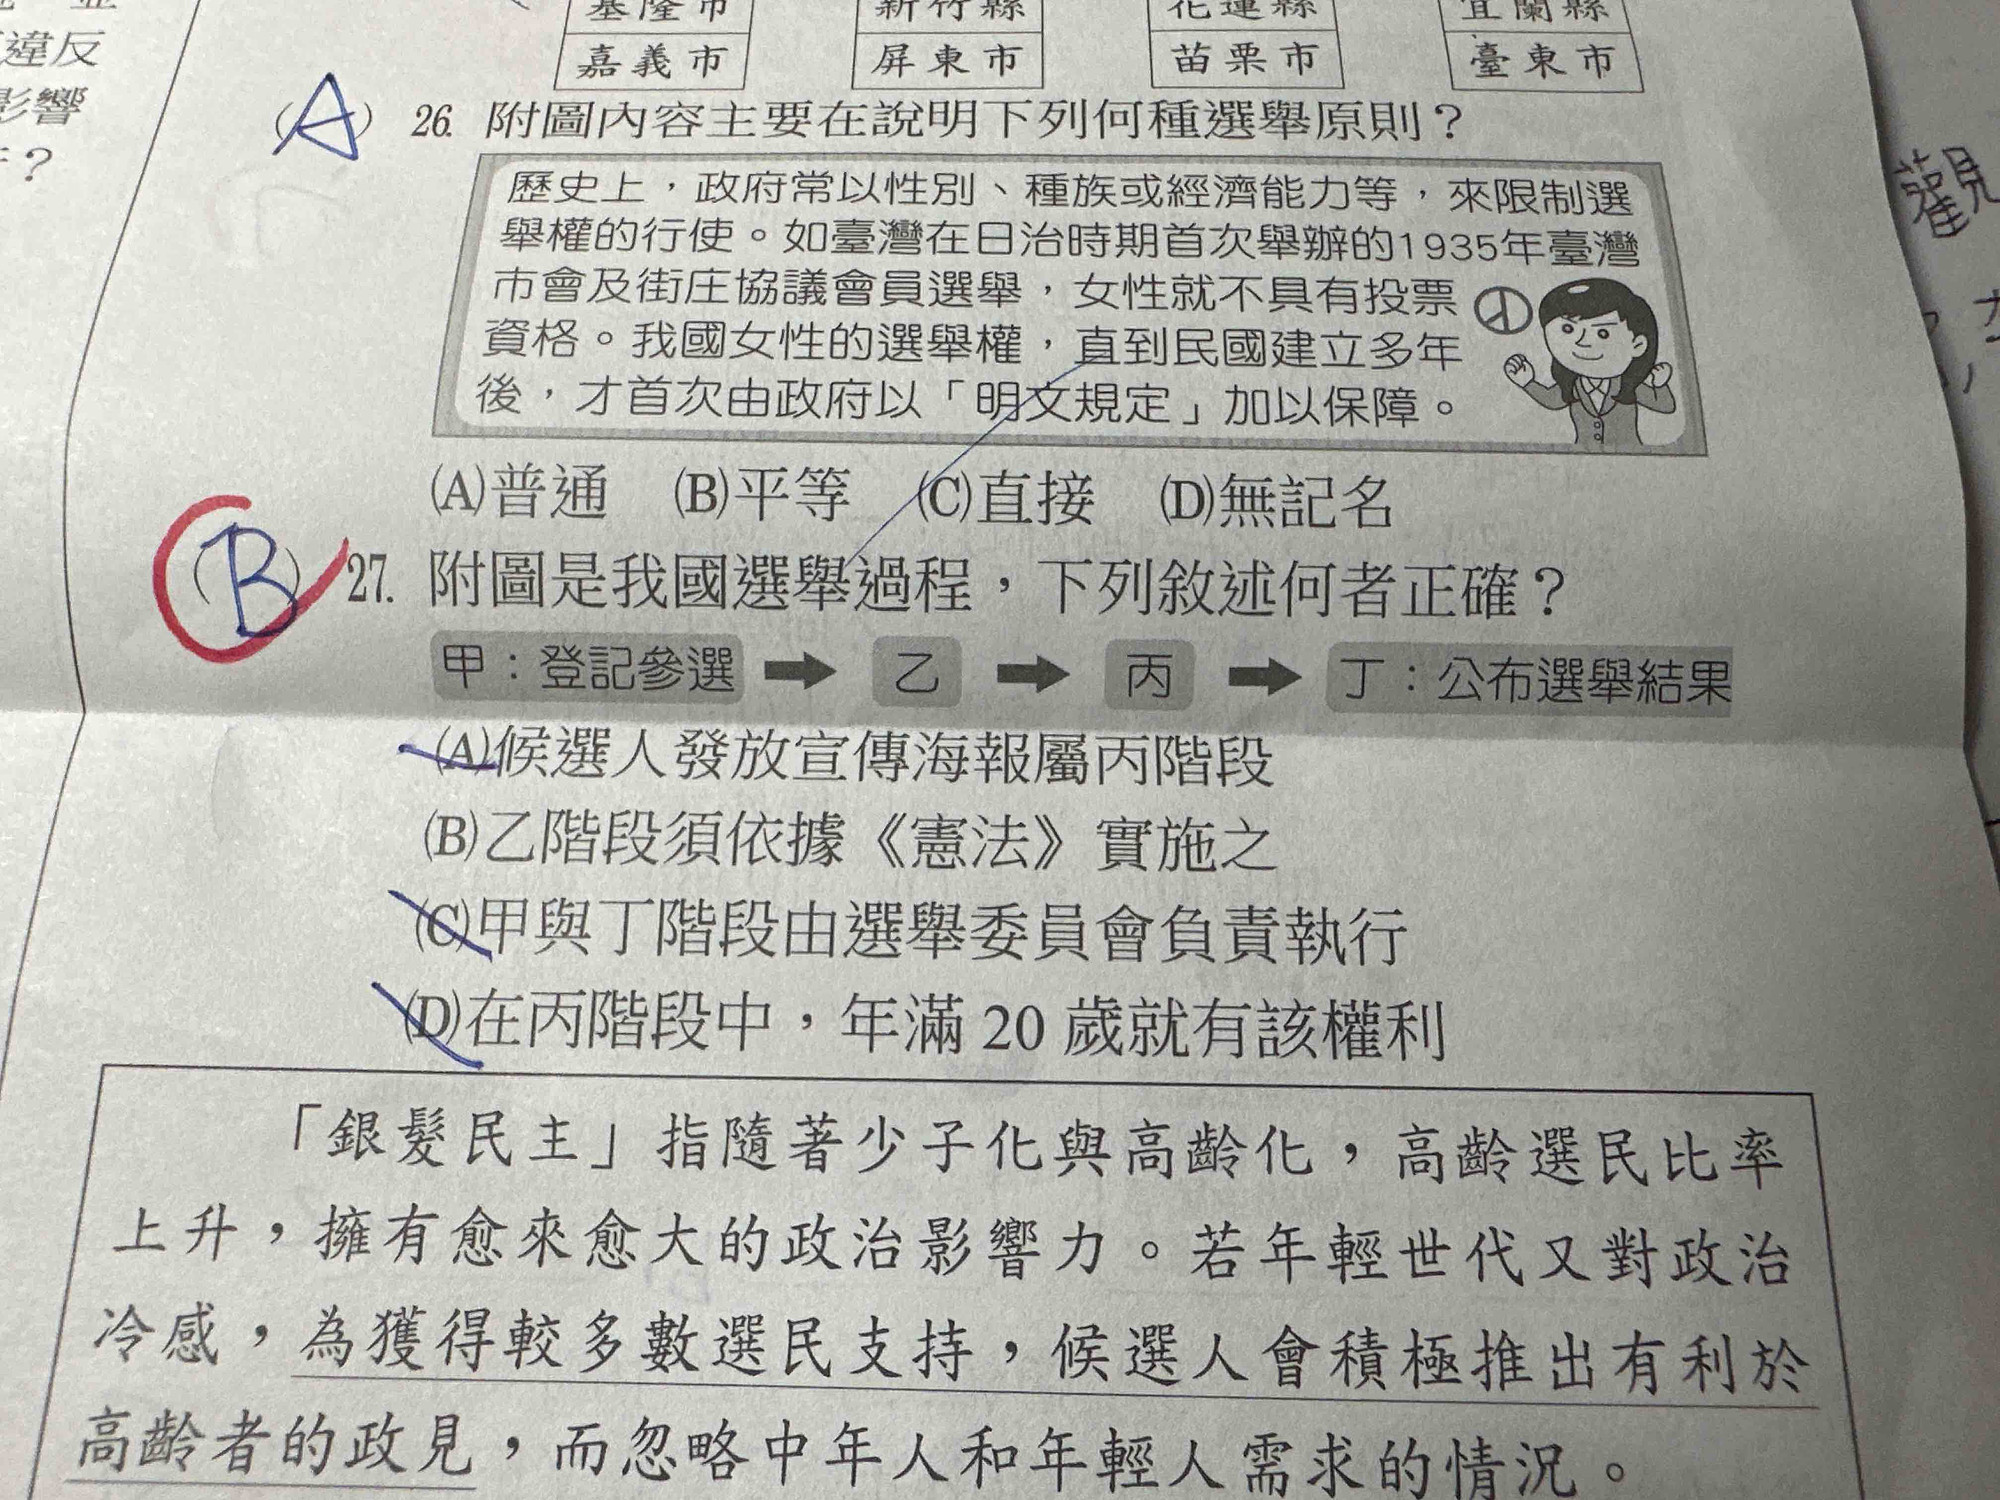 違反
影響
？
基隆市 新竹縣 花蓮縣 宜蘭縣
嘉義市 屏東市 苗栗市 臺東市
(A) 26. 附圖內容主要在說明下列何種選舉原則？
歷史上，政府常以性別、種族或經濟能力等，來限制選
舉權的行使。如臺灣在日治時期首次舉辦的1935年臺灣
市會及街庄協議會員選舉，女性就不具有投票
資格。我國女性的選舉權，直到民國建立多年
後，才首次由政府以「明文規定」加以保障。
(A)普通 (B)平等 (C)直接 (D)無記名
(B) 27. 附圖是我國選舉過程，下列敘述何者正確？
甲：登記參選 ➡ 乙 ➡ 丙 ➡ 丁：公布選舉結果
(A)候選人發放宣傳海報屬丙階段
(B)乙階段須依據《憲法》實施之
(C)甲與丁階段由選舉委員會負責執行
(D)在丙階段中，年滿 20 歲就有該權利
「銀髮民主」指隨著少子化與高齡化，高齡選民比率
上升，擁有愈來愈大的政治影響力。若年輕世代又對政治
冷感，為獲得較多數選民支持，候選人會積極推出有利於
高齡者的政見，而忽略中年人和年輕人需求的情況。
觀